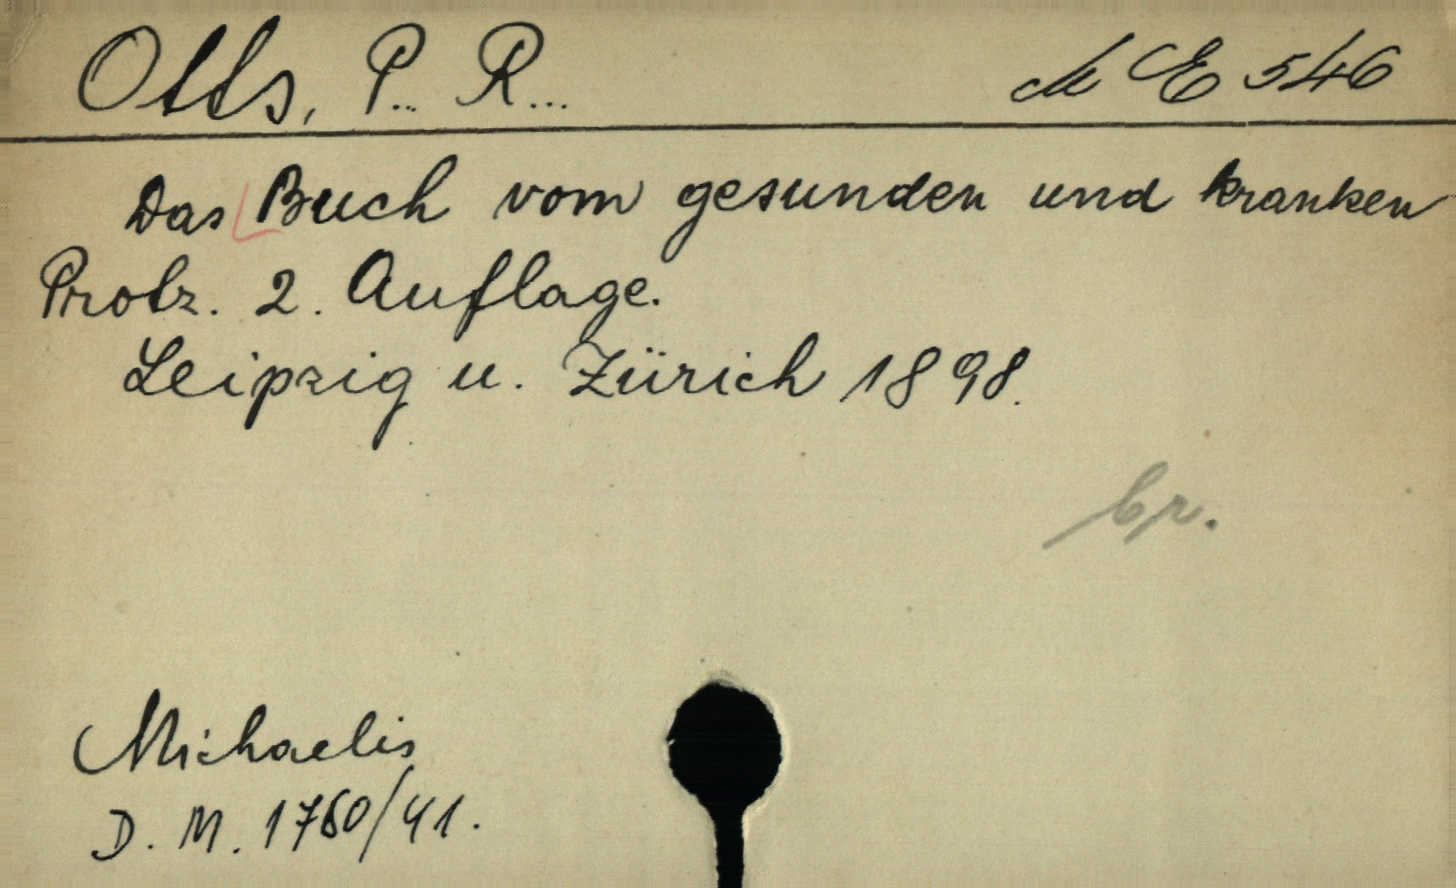 Otts, P.. R...
M E 546
Das Buch vom gesunden und kranken
Protz. 2. Auflage.
Leipzig u. Zürich 1898.
br.
Michaelis
D. M. 1760/41.